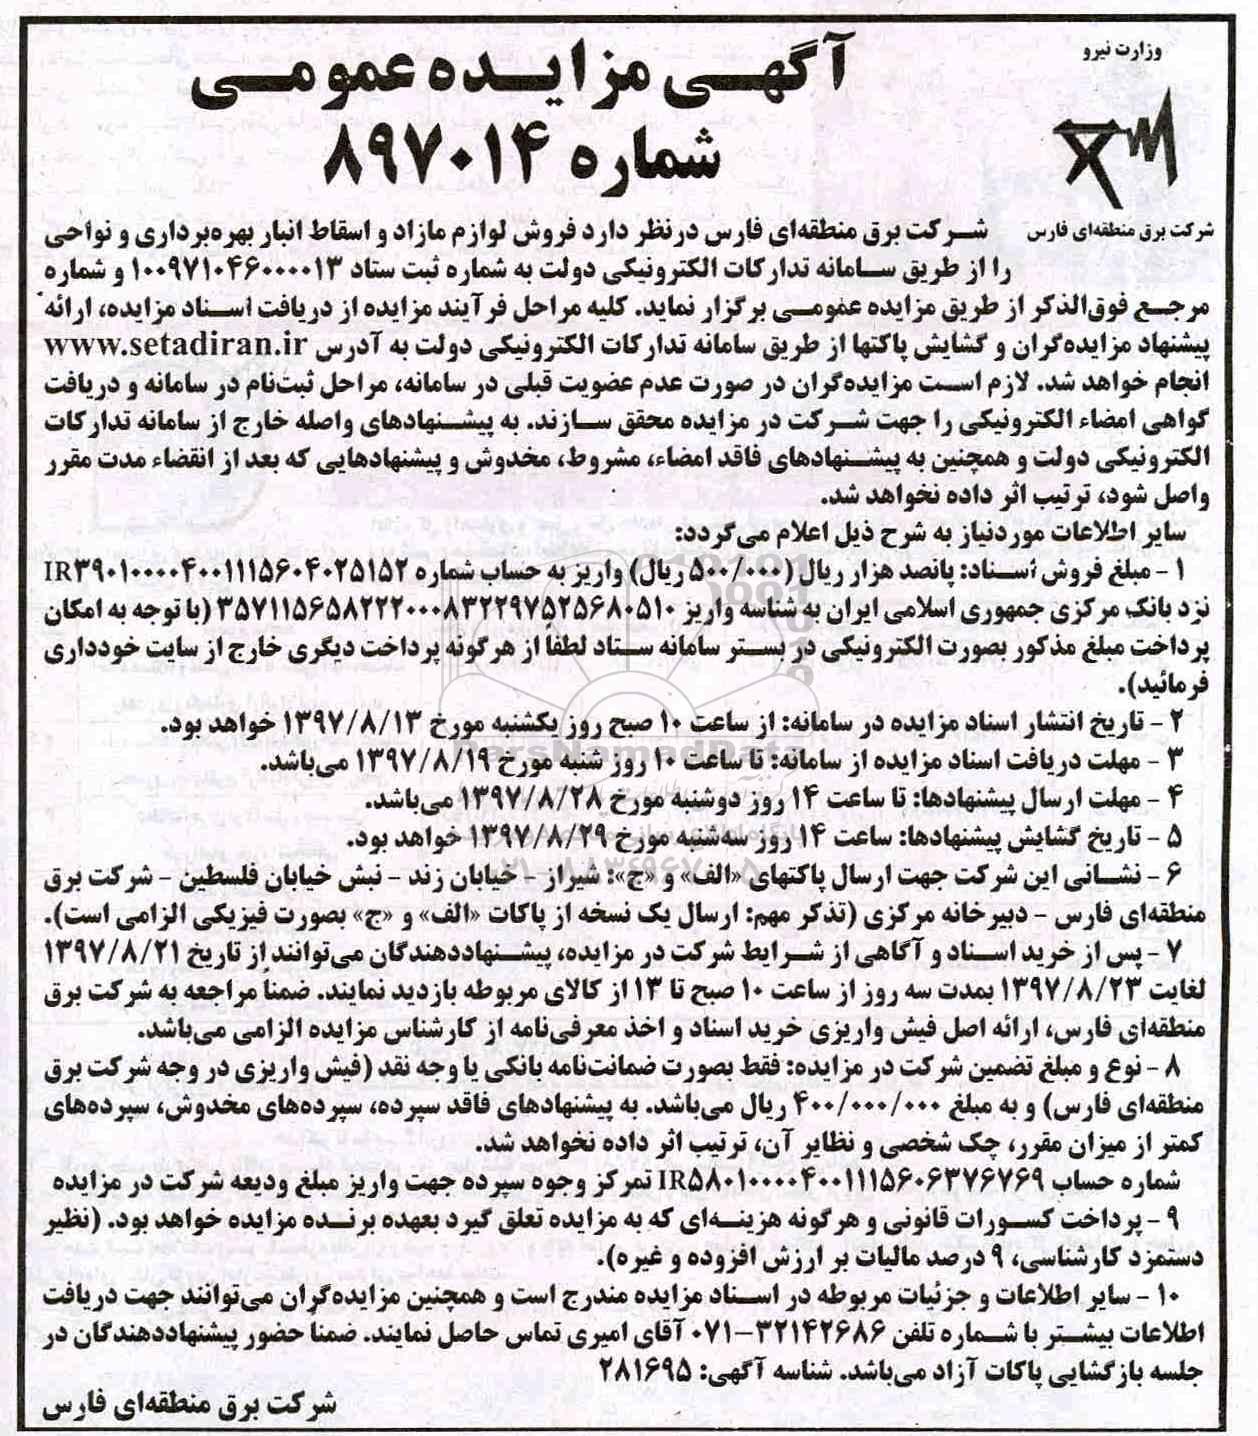 وزارت نیرو
آگهی مزایده عمومی
شماره ۸۹۷۰۱۴
شرکت برق منطقه‌ای فارس
شرکت برق منطقه‌ای فارس درنظر دارد فروش لوازم مازاد و اسقاط انبار بهره‌برداری و نواحی
را از طریق سامانه تدارکات الکترونیکی دولت به شماره ثبت ستاد ۱۰۰۹۷۱۰۴۶۰۰۰۰۱۳ و شماره
مرجع فوق‌الذکر از طریق مزایده عمومی برگزار نماید. کلیه مراحل فرآیند مزایده از دریافت اسناد مزایده، ارائه
پیشنهاد مزایده‌گران و گشایش پاکتها از طریق سامانه تدارکات الکترونیکی دولت به آدرس www.setadiran.ir
انجام خواهد شد. لازم است مزایده‌گران در صورت عدم عضویت قبلی در سامانه، مراحل ثبت‌نام در سامانه و دریافت
گواهی امضاء الکترونیکی را جهت شرکت در مزایده محقق سازند. به پیشنهادهای واصله خارج از سامانه تدارکات
الکترونیکی دولت و همچنین به پیشنهادهای فاقد امضاء، مشروط، مخدوش و پیشنهادهایی که بعد از انقضاء مدت مقرر
واصل شود، ترتیب اثر داده نخواهد شد.
سایر اطلاعات موردنیاز به شرح ذیل اعلام می‌گردد:
۱ - مبلغ فروش اسناد: پانصد هزار ریال (۵۰۰/۰۰۰ ریال) واریز به حساب شماره IR۳۹۰۱۰۰۰۰۴۰۰۱۱۱۵۶۰۴۰۲۵۱۵۲
نزد بانک مرکزی جمهوری اسلامی ایران به شناسه واریز ۳۵۷۱۱۵۶۵۸۲۲۲۰۰۰۸۳۲۲۹۷۵۲۵۶۸۰۵۱۰ (با توجه به امکان
پرداخت مبلغ مذکور بصورت الکترونیکی در بستر سامانه ستاد لطفاً از هرگونه پرداخت دیگری خارج از سایت خودداری
فرمائید).
۲ - تاریخ انتشار اسناد مزایده در سامانه: از ساعت ۱۰ صبح روز یکشنبه مورخ ۱۳۹۷/۸/۱۳ خواهد بود.
۳ - مهلت دریافت اسناد مزایده از سامانه: تا ساعت ۱۰ روز شنبه مورخ ۱۳۹۷/۸/۱۹ می‌باشد.
ParsNamadData
۴ - مهلت ارسال پیشنهادها: تا ساعت ۱۴ روز دوشنبه مورخ ۱۳۹۷/۸/۲۸ می‌باشد.
۵ - تاریخ گشایش پیشنهادها: ساعت ۱۴ روز سه‌شنبه مورخ ۱۳۹۷/۸/۲۹ خواهد بود.
۶ - نشانی این شرکت جهت ارسال پاکتهای «الف» و «ج»: شیراز - خیابان زند - نبش خیابان فلسطین - شرکت برق
منطقه‌ای فارس - دبیرخانه مرکزی (تذکر مهم: ارسال یک نسخه از پاکات «الف» و «ج» بصورت فیزیکی الزامی است).
۷ - پس از خرید اسناد و آگاهی از شرایط شرکت در مزایده، پیشنهاددهندگان می‌توانند از تاریخ ۱۳۹۷/۸/۲۱
لغایت ۱۳۹۷/۸/۲۳ بمدت سه روز از ساعت ۱۰ صبح تا ۱۳ از کالای مربوطه بازدید نمایند. ضمناً مراجعه به شرکت برق
منطقه‌ای فارس، ارائه اصل فیش واریزی خرید اسناد و اخذ معرفی‌نامه از کارشناس مزایده الزامی می‌باشد.
۸ - نوع و مبلغ تضمین شرکت در مزایده: فقط بصورت ضمانت‌نامه بانکی یا وجه نقد (فیش واریزی در وجه شرکت برق
منطقه‌ای فارس) و به مبلغ ۴۰۰/۰۰۰/۰۰۰ ریال می‌باشد. به پیشنهادهای فاقد سپرده، سپرده‌های مخدوش، سپرده‌های
کمتر از میزان مقرر، چک شخصی و نظایر آن، ترتیب اثر داده نخواهد شد.
شماره حساب IR۵۸۰۱۰۰۰۰۴۰۰۱۱۱۵۶۰۶۳۷۶۷۶۹ تمرکز وجوه سپرده جهت واریز مبلغ ودیعه شرکت در مزایده
۹ - پرداخت کسورات قانونی و هرگونه هزینه‌ای که به مزایده تعلق گیرد بعهده برنده مزایده خواهد بود. (نظیر
دستمزد کارشناسی، ۹ درصد مالیات بر ارزش افزوده و غیره).
۱۰ - سایر اطلاعات و جزئیات مربوطه در اسناد مزایده مندرج است و همچنین مزایده‌گران می‌توانند جهت دریافت
اطلاعات بیشتر با شماره تلفن ۳۲۱۴۲۶۸۶-۰۷۱ آقای امیری تماس حاصل نمایند. ضمنا حضور پیشنهاددهندگان در
جلسه بازگشایی پاکات آزاد می‌باشد. شناسه آگهی: ۲۸۱۶۹۵
شرکت برق منطقه‌ای فارس